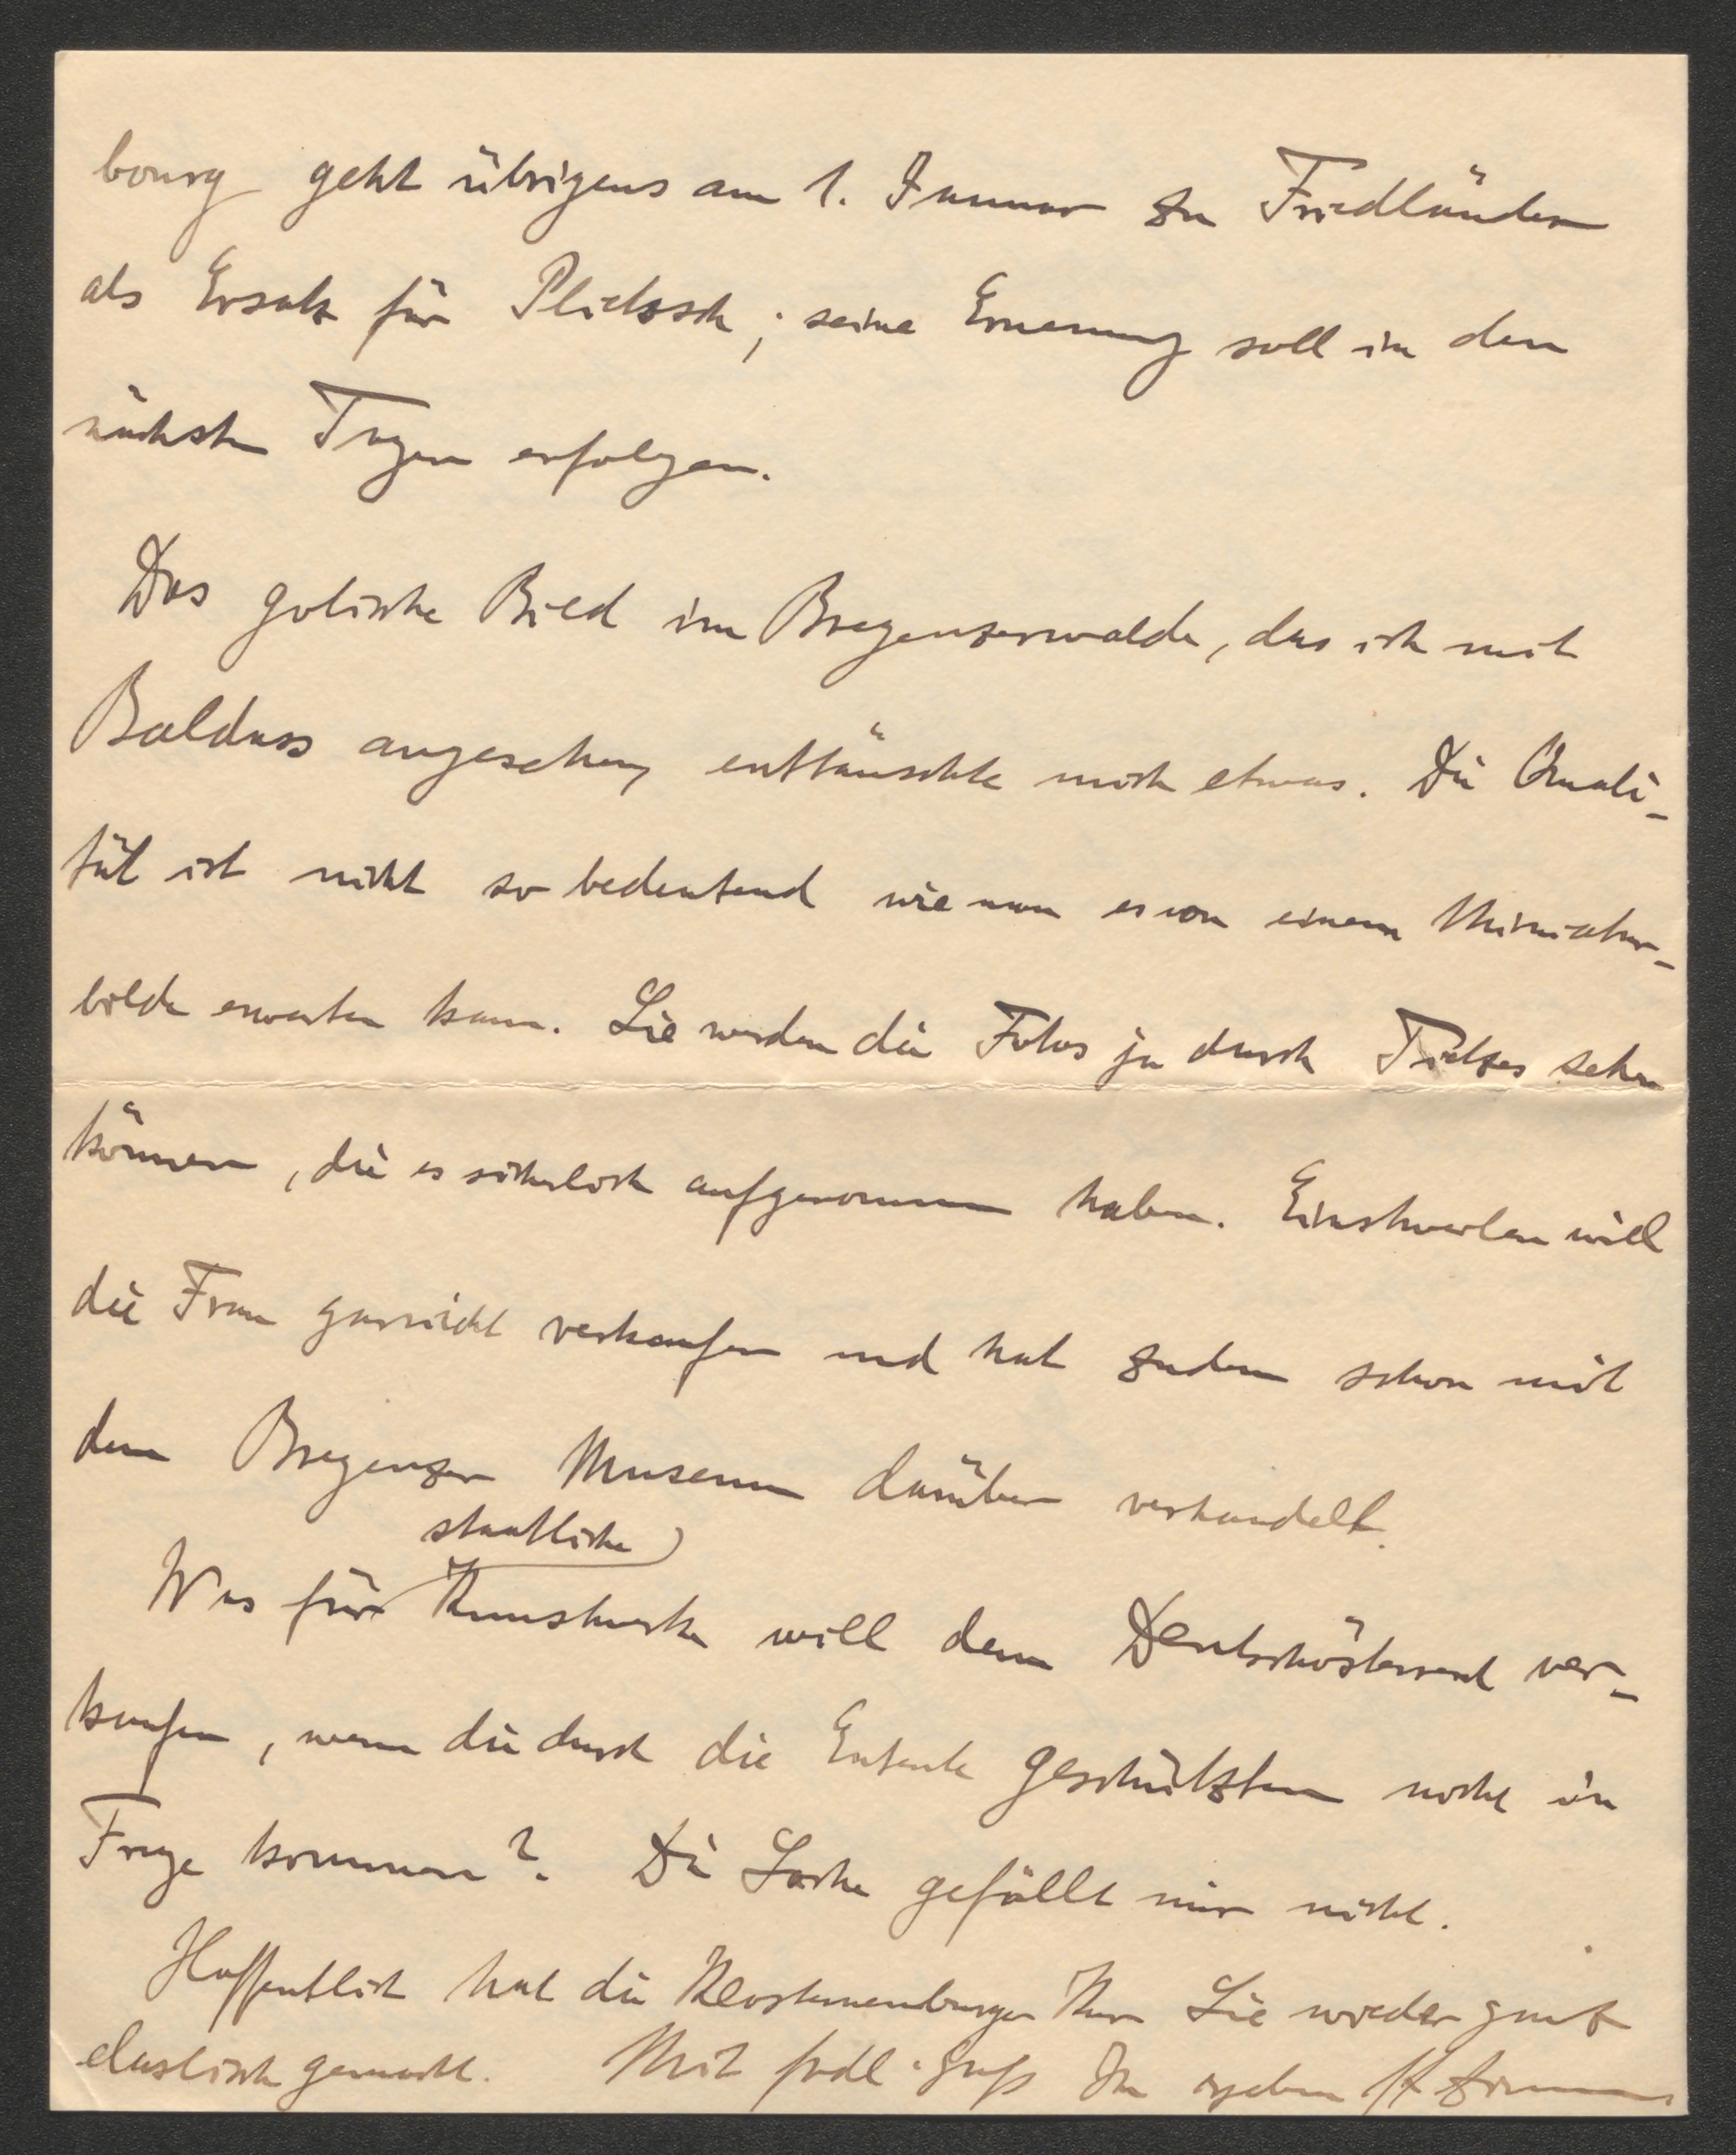 bourg geht übrigens am 1. Januar zu Friedländer
als Ersatz für Plietzsch; seine Ernennung soll in den
nächsten Tagen erfolgen.
Das gotische Bild im Bregenzerwalde, das ich mit
Baldass angesehen, enttäuschte mich etwas. Die Quali-
tät ist nicht so bedeutend wie man es von einem Miniatur-
bilde erwarten kann. Sie werden die Fotos ja durch Tietzes sehen
können, die es sicherlich aufgenommen haben. Einstweilen will
die Frau garnicht verkaufen und hat zudem schon mit
dem Bregenzer Museum darüber verhandelt.
staatliche
Was für Kunstwerke will denn Deutschösterreich ver-
kaufen, wenn die durch die Entente geschützten nicht in
Frage kommen? Die Sache gefällt mir nicht.
Hoffentlich hat die Klosterneuburger Kur Sie wieder ganz
elastisch gemacht. Mit frdl. Gruß Ihr ergebener